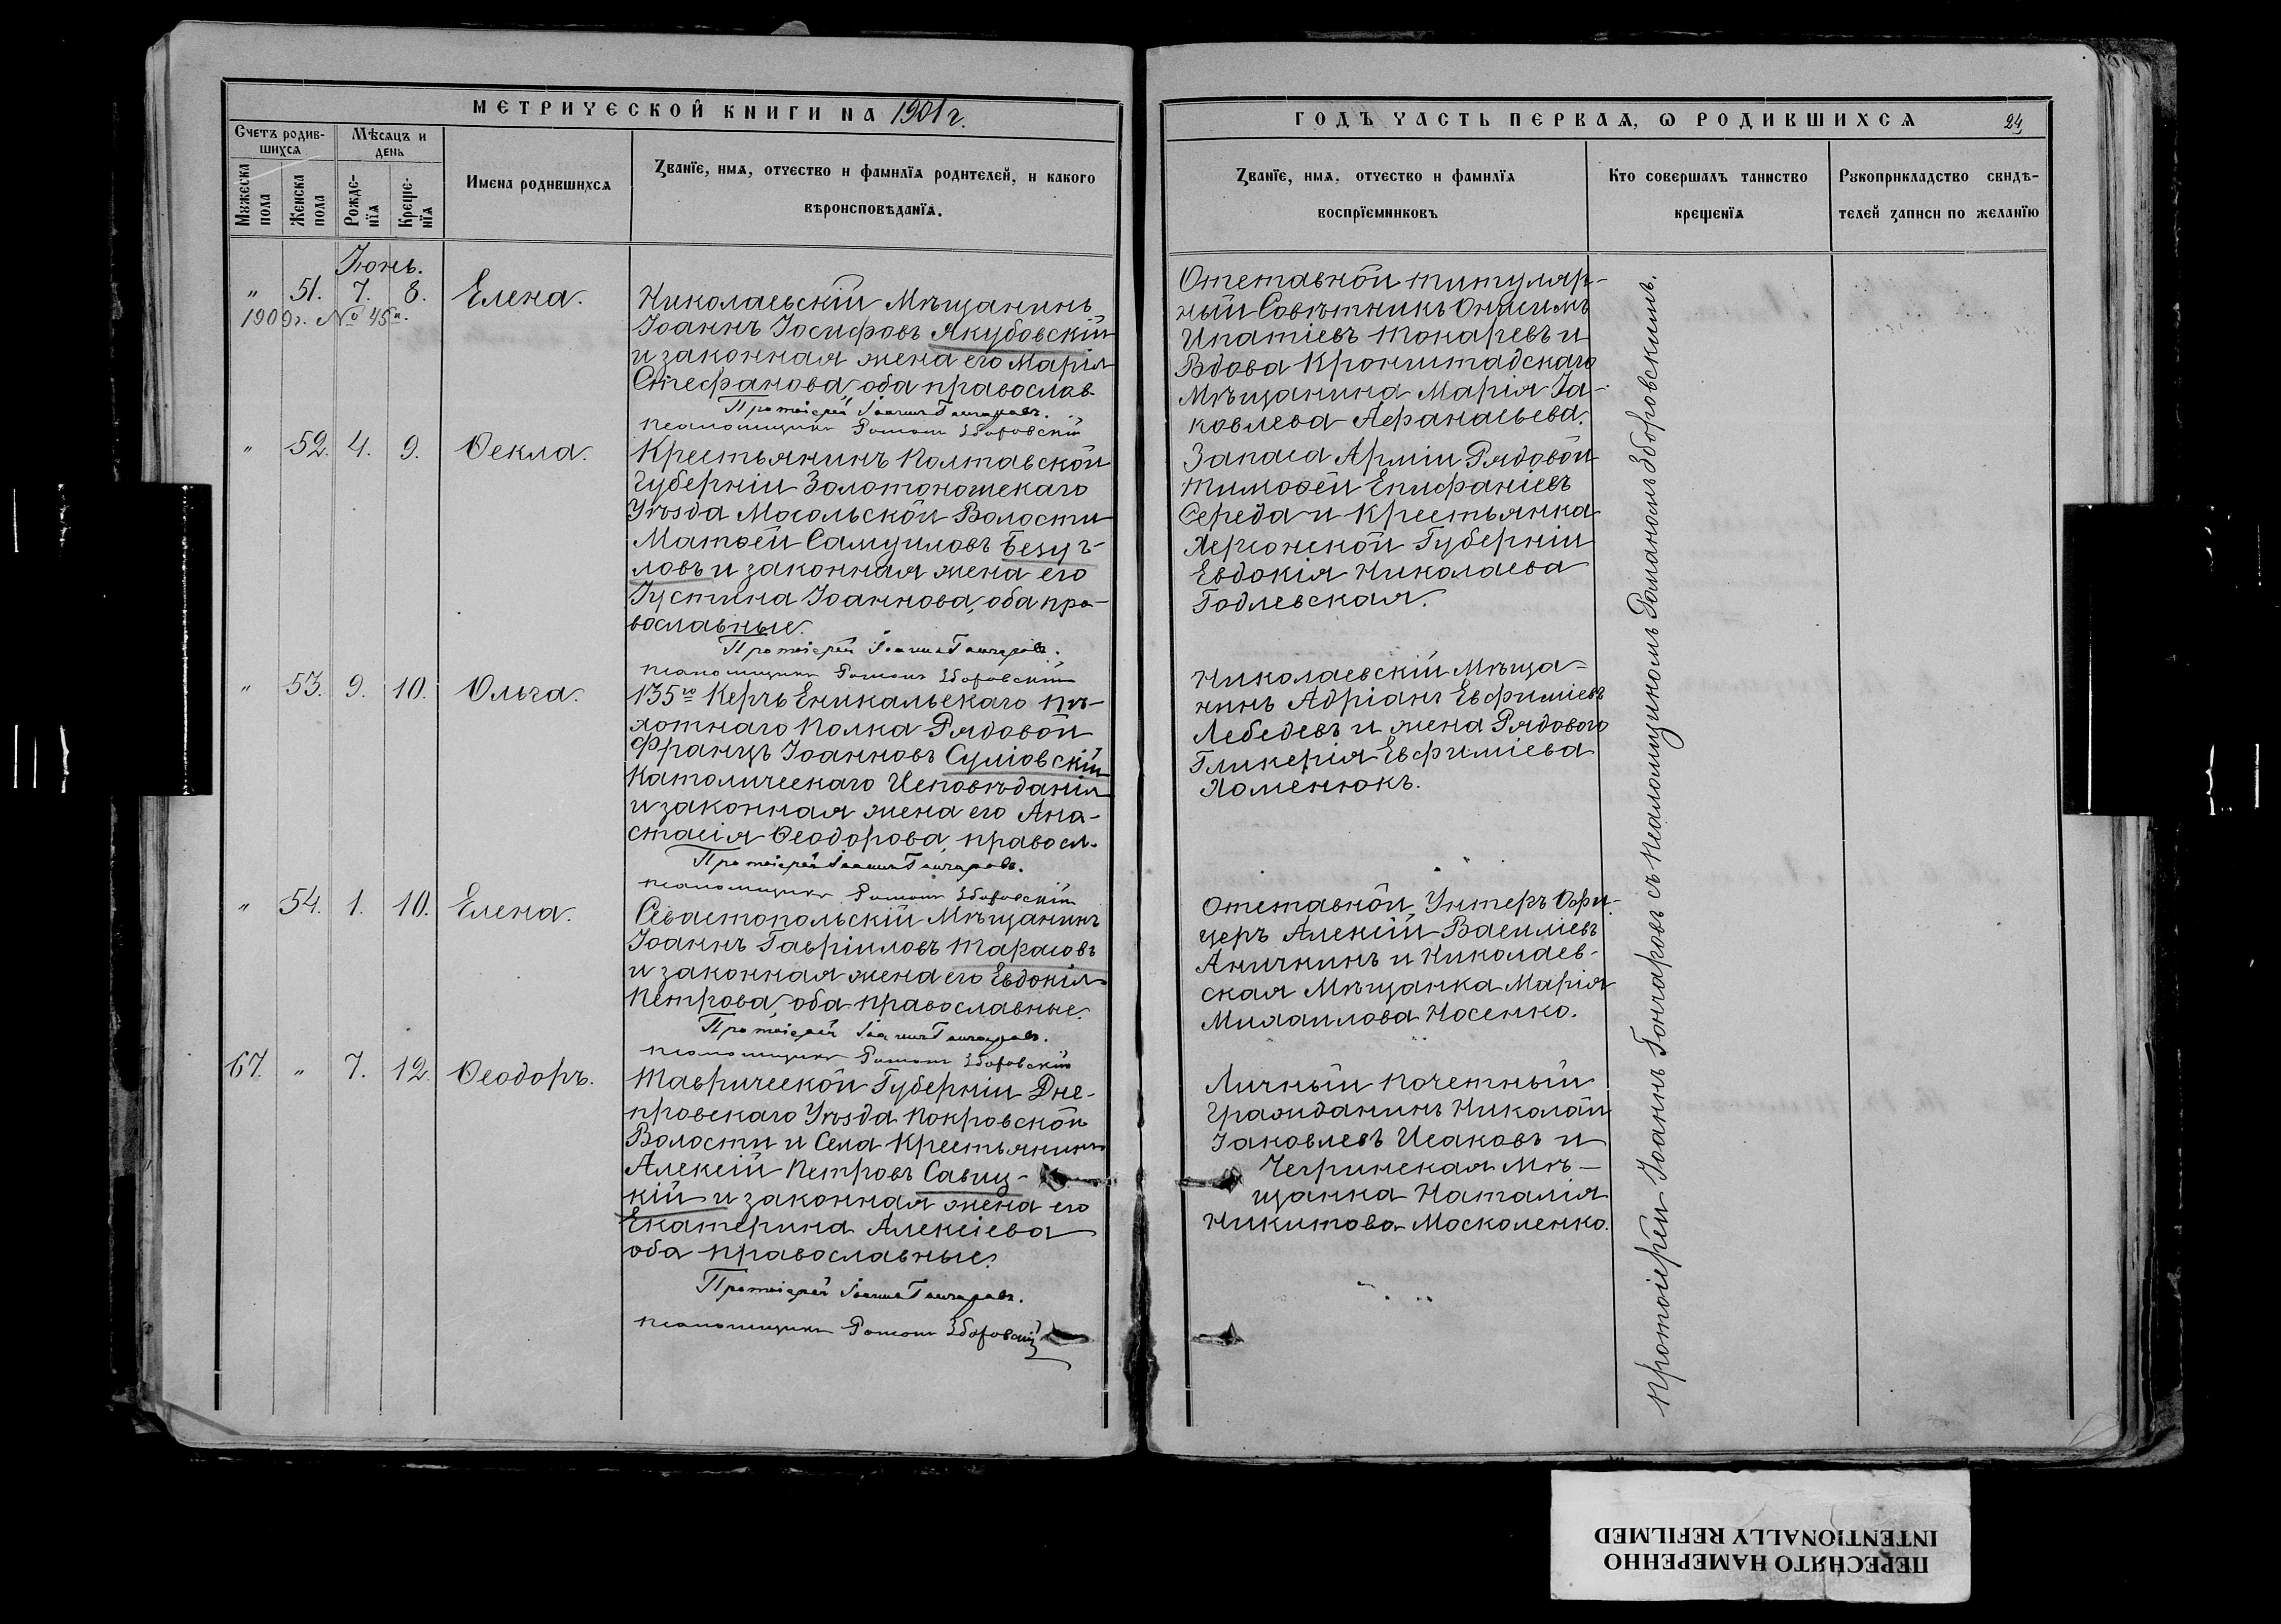 МЕТРИЧЕСКОЙ КНИГИ НА 1901 г.
Счетъ родив-
шихся
Мѣсяцъ и
день
Мужеска
пола
Женска
пола
Рожде-
нїя
Креще-
нїя
Имена родившихся
Званїе, имя, отчество и фамилїя родителей, и какого
вѣроисповѣданїя.
Іюнь.
" 51. 7. 8. Елена.
1909г. № 45
Николаевскій Мѣщанинъ
Іоаннъ Іосифовъ Якубовскій
и законная жена его Марія
Стефанова, оба православ.
Протоіерей Іоаннъ Гончаровъ.
Псаломщикъ Романъ Зборовскій
" 52. 4. 9. Ѳекла.
Крестьянинъ Полтавской
Губерніи Золотоношскаго
Уѣзда Мосольской Волости
Матѳей Самуиловъ Безуг-
ловъ и законная жена его
Іустина Іоаннова, оба пра-
вославные.
Протоіерей Іоаннъ Гончаровъ.
Псаломщикъ Романъ Зборовскій
" 53. 9. 10. Ольга.
135го Керчь Еникальскаго Пѣ-
хотнаго Полка Рядовой
Францъ Іоанновъ Суліовскій
Католическаго Исповѣданія
и законная жена его Ана-
стасія Ѳеодорова, правосл.
Протоіерей Іоаннъ Гончаровъ.
Псаломщикъ Романъ Зборовскій
" 54. 1. 10. Елена.
Севастопольскій Мѣщанинъ
Іоаннъ Гавріиловъ Тарасовъ
и законная жена его Евдокія
Петрова, оба православные.
Протоіерей Іоаннъ Гончаровъ.
Псаломщикъ Романъ Зборовскій
67. " 7. 12. Ѳеодоръ.
Таврической Губерніи Дне-
провскаго Уѣзда Покровской
Волости и Села Крестьянинъ
Алексій Петровъ Савиц-
кій и законная жена его
Екатерина Алексіева
оба православные.
Протоіерей Іоаннъ Гончаровъ.
Псаломщикъ Романъ Зборовскій
ГОДЪ ЧАСТЬ ПЕРВАЯ, Ѡ РОДИВШИХСЯ
24
Званїе, имя, отчество и фамилїя
воспрїемниковъ
Кто совершалъ таинство
крещенїя
Рукоприкладство свидѣ-
телей записи по желанїю
Отставной титуляр-
ный Совѣтникъ Онисимъ
Ипатіевъ Токаревъ и
Вдова Кронштадскаго
Мѣщанина Марія Іа-
ковлева Афанасьева.
Запаса Арміи Рядовой
Тимоѳей Епифаніевъ
Середа и Крестьянка
Херсонской Губерніи
Евдокія Николаева
Годлевская.
Николаевскій Мѣща-
нинъ Адріанъ Евфиміевъ
Лебедевъ и жена Рядового
Гликерія Евфиміева
Хоменюкъ.
Отставной Унтеръ Офи-
церъ Алексій Василіевъ
Аничкинъ и Николаев-
ская Мѣщанка Марія
Михаилова Носенко.
Личный Почетный
Гражданинъ Николай
Іаковлевъ Исаковъ и
Чегринская Мѣ-
щанка Наталія
Никитова Москаленко.
Протоіерей Іоаннъ Гончаровъ съ Псаломщикомъ Романомъ Зборовскимъ.
ПЕРЕСНЯТО НАМЕРЕННО
INTENTIONALLY REFILMED